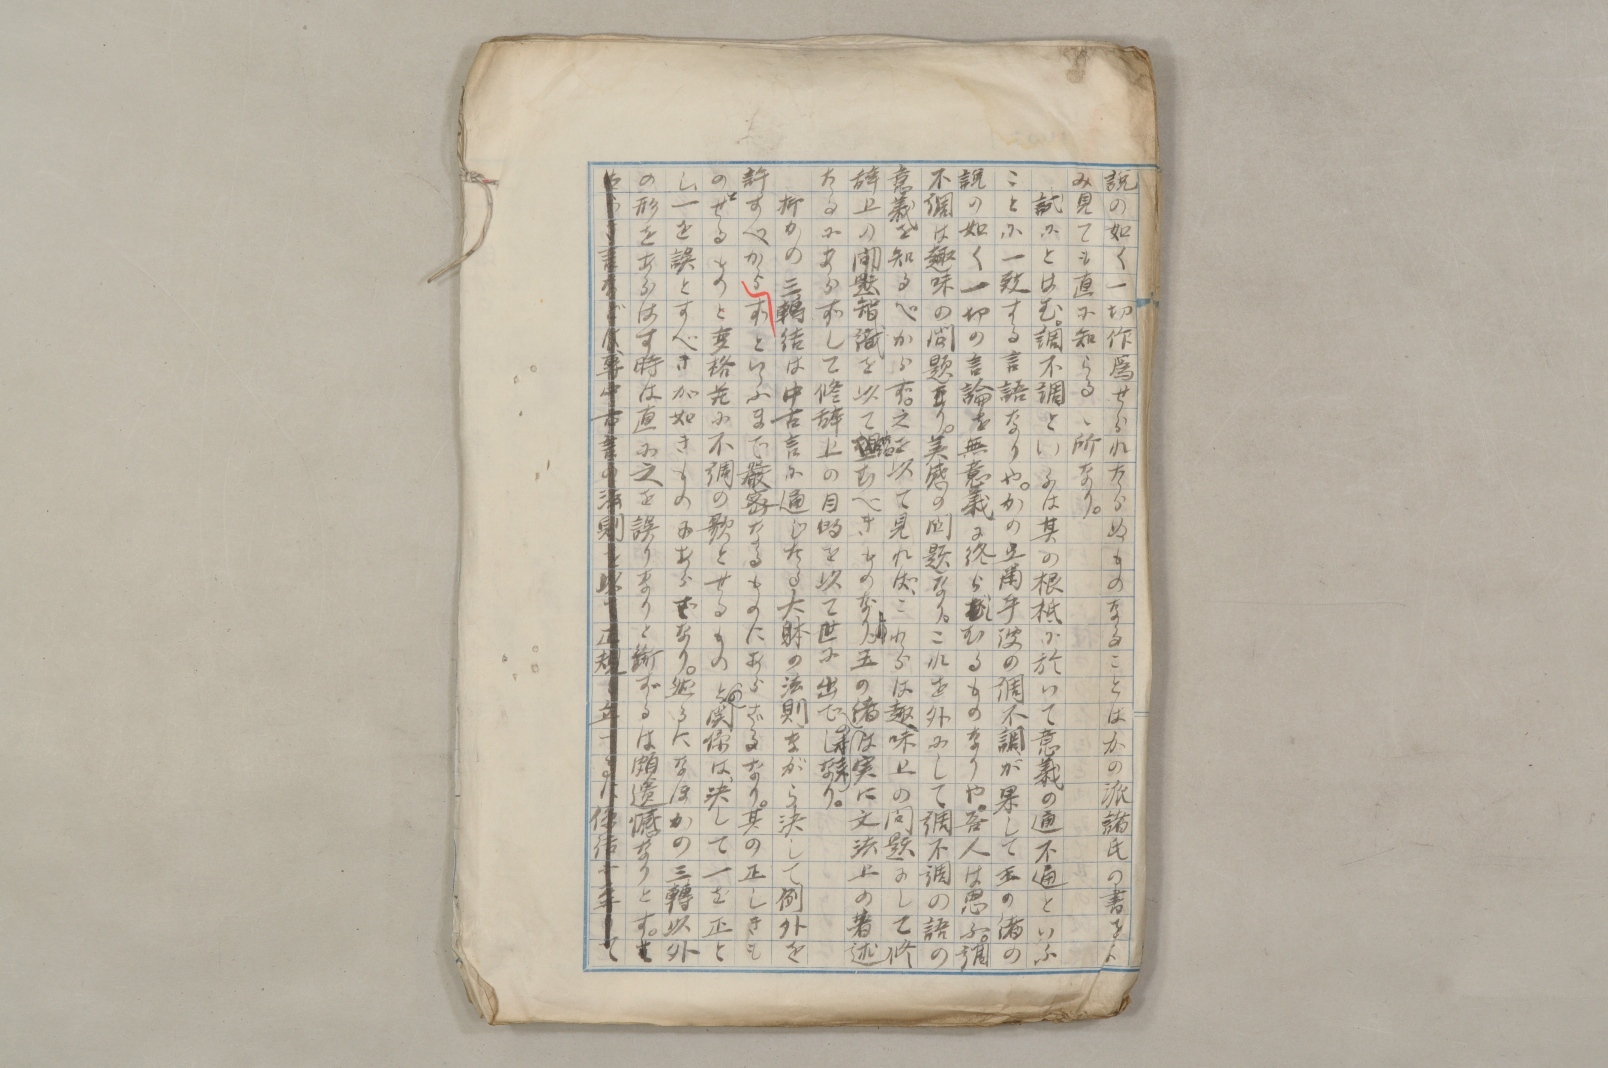 説の如く一切作為せられたらぬものなることはかの派諸氏の書をよ
み見ても直に知らるゝ所なり。
試にとはむ。調不調といふは其の根柢に於いて意義の通不通といふ
ことに一致する言語なりや。かの亙爾乎波の調不調が果して玉の緒の
説の如く一切の言論を無意義に終らしむるものなりや。吾人は思ふ。調
不調は趣味の問題なり。美感の問題なり。これを外にして調不調の語の
意義を知るべからず。之を以て見れば、これらは趣味上の問題にして修
辞上の問題智識を以て望むべきものなり。玉の緒は実に文法上の著述
たるにあらずして修辞上の目的を以て世に出でしなり。
抑かの三轉結は中古言に通じたる大体の法則ながら決して例外を
許すべからずといふまで厳密なるものにあらざるなり。其の正しきも
のとせるものと変格若に不調の歌とせるものとの関係は、決して一を正と
し一を誤とすべきが如きものにあらざなり。然るになほかの三轉以外
の形をあらはす時は直に之を誤りなりと断ずるは頗遺憾なりとす。